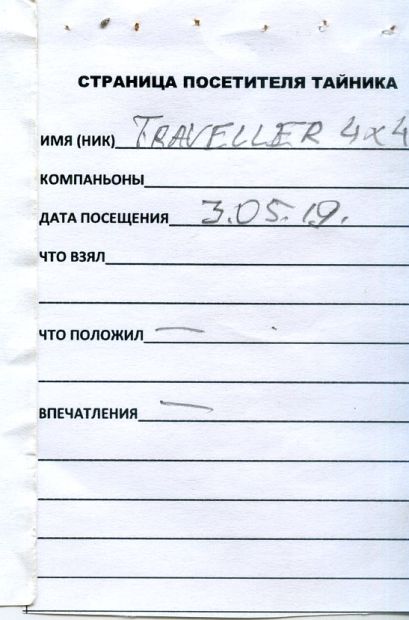 СТРАНИЦА ПОСЕТИТЕЛЯ ТАЙНИКА
ИМЯ (НИК) TRAVELLER 4x4
КОМПАНЬОНЫ
ДАТА ПОСЕЩЕНИЯ 3.05.19.
ЧТО ВЗЯЛ
ЧТО ПОЛОЖИЛ —
ВПЕЧАТЛЕНИЯ —